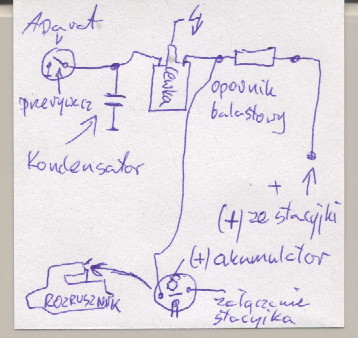 Aparat
przerywacz
cewka
opornik
balastowy
Kondensator
+
(+) ze stacyjki
(+) akumulator
ROZRUSZNIK
załączanie
stacyjka